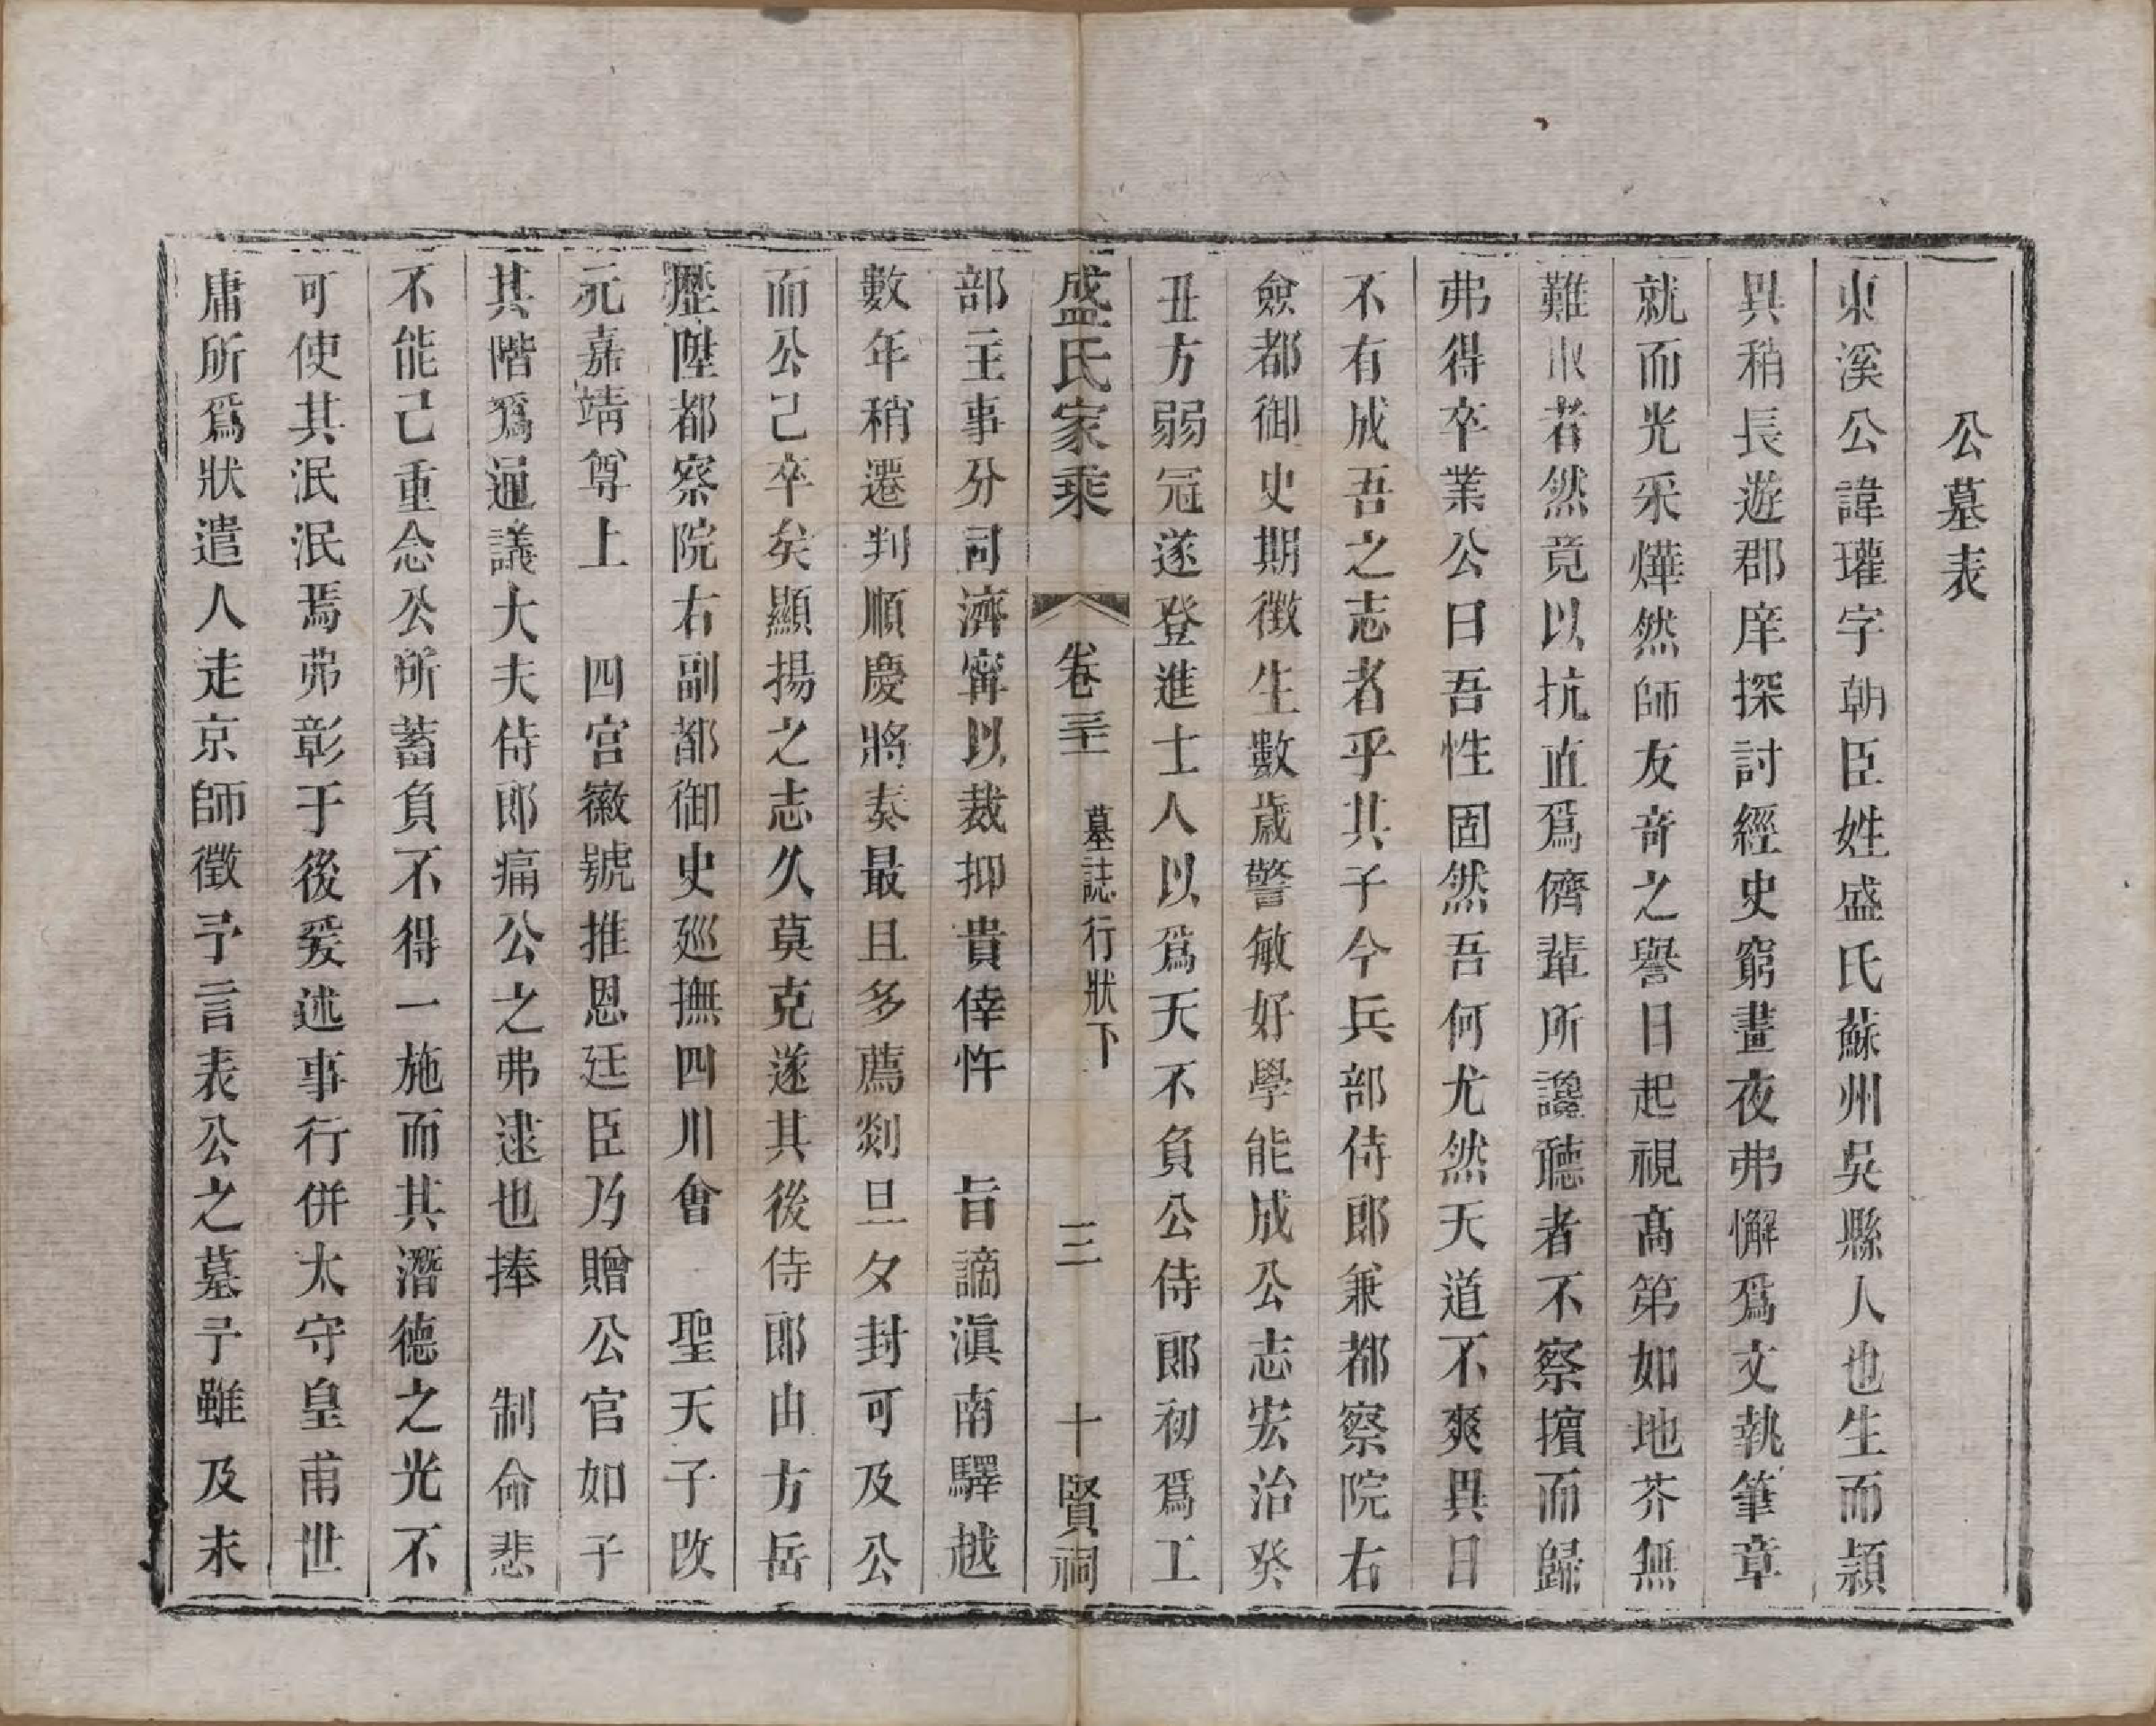 公墓表
東溪公諱瓘字朝臣姓盛氏蘇州吳縣人也生而頴
異稍長遊郡庠探討經史窮晝夜弗懈爲文執筆章
就而光采燁然師友奇之譽日起視髙第如地芥無
難取者然竟以抗直爲儕輩所讒聽者不察擯而歸
弗得卒業公曰吾性固然吾何尤然天道不爽異日
不有成吾之志者乎其子今兵部侍郎兼都察院右
僉都御史期徵生數歲警敏好學能成公志宏治癸
丑方弱冠遂登進士人以爲天不負公侍郎初爲工
盛氏家乘 卷三 墓誌行狀下 三 十賢祠
部主事分司濟甯以裁抑貴倖忤 旨謫滇南驛越
數年稍遷判順慶將奏最且多薦剡旦夕封可及公
而公己卒矣顯揚之志久莫克遂其後侍郎由方岳
歷陞都察院右副都御史廵撫四川會 聖天子改
元嘉靖尊上 四宮徽號推恩廷臣乃贈公官如子
其階爲通議大夫侍郎痛公之弗逮也捧 制命悲
不能己重念公所蓄負不得一施而其潛德之光不
可使其泯泯焉弗彰于後爰述事行併太守皇甫世
庸所爲狀遣人走京師徵予言表公之墓予雖及未